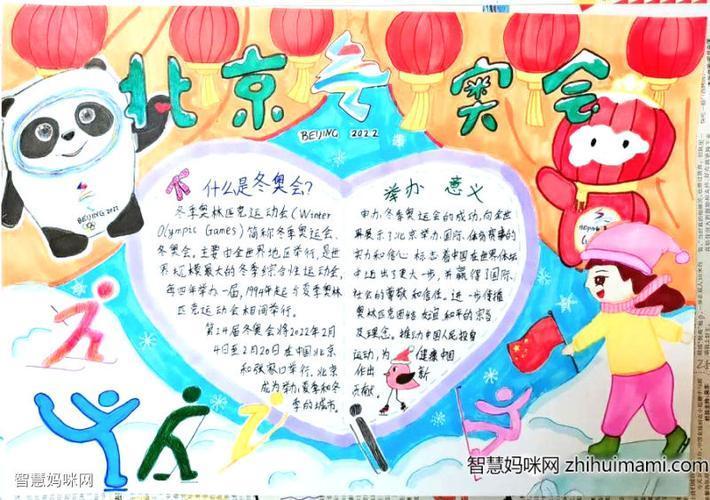 北京冬奥会
BEIJING 2022
BEIJING 2022
什么是冬奥会?
冬季奥林匹克运动会(Winter
Olympic Games)简称冬季奥运会
冬奥会。主要由全世界地区举行,是世
界规模最大的冬季综合性运动会,
每四年举办一届,1994年起与夏季奥林
匹克运动会相间举行。
第24届冬奥会将2022年2月
4日至2月20日在中国北京
和张家口举行。北京
成为举办夏季和冬
季的城市。
举办 意义
申办冬季奥运会的成功,向全世
界展示了北京举办国际体育赛事的
实力和信心 标志着中国在世界体坛
上迈出了更大一步,并赢得了国际
社会的尊敬和信任。进一步传播
奥林匹克团结 友谊 和平的宗旨
及理念。推动中国人民投身
运动,为 健康中国
作出 新
贡献。
智慧妈咪网
智慧妈咪网 zhihuimami.com